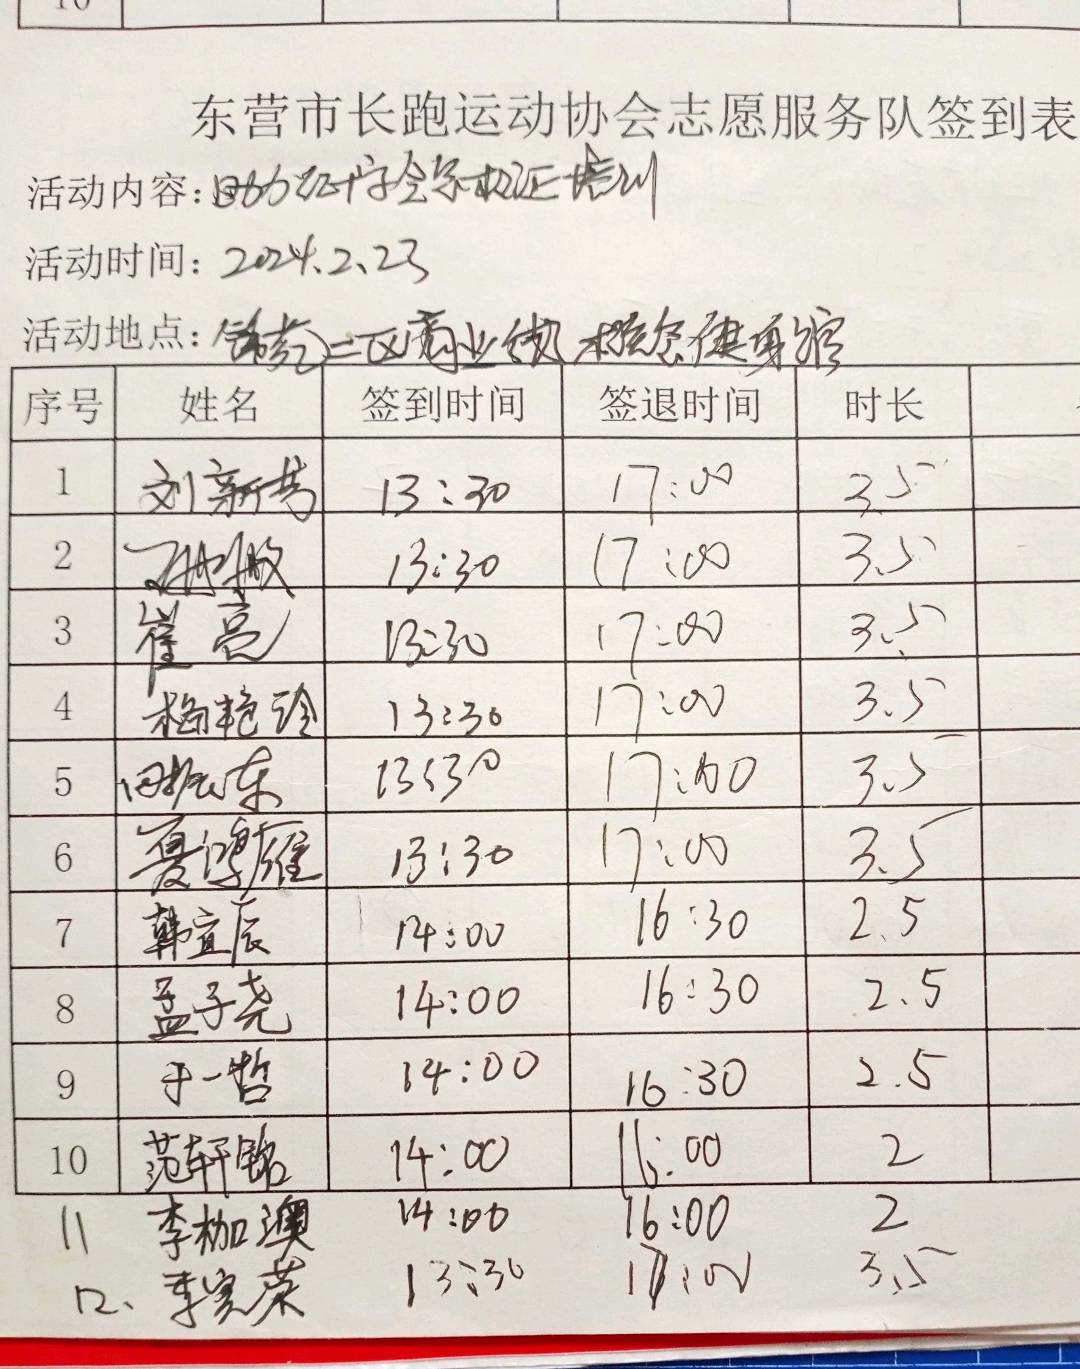 10
东营市长跑运动协会志愿服务队签到表
活动内容:助力红十字会急救证培训
活动时间:2024.2.23
活动地点:锦苑二区商业街 健身馆
序号 姓名 签到时间 签退时间 时长
1 刘新芳 13:30 17:00 3.5
2 13:30 17:00 3.5
3 崔亮 13:30 17:00 3.5
4 梅艳玲 13:30 17:00 3.5
5 田振东 13:30 17:00 3.5
6 夏鸿雁 13:30 17:00 3.5
7 韩宜辰 14:00 16:30 2.5
8 孟子尧 14:00 16:30 2.5
9 于一哲 14:00 16:30 2.5
10 范轩铭 14:00 16:00 2
11 李枷澳 14:00 16:00 2
12、李宪荣 13:30 17:00 3.5